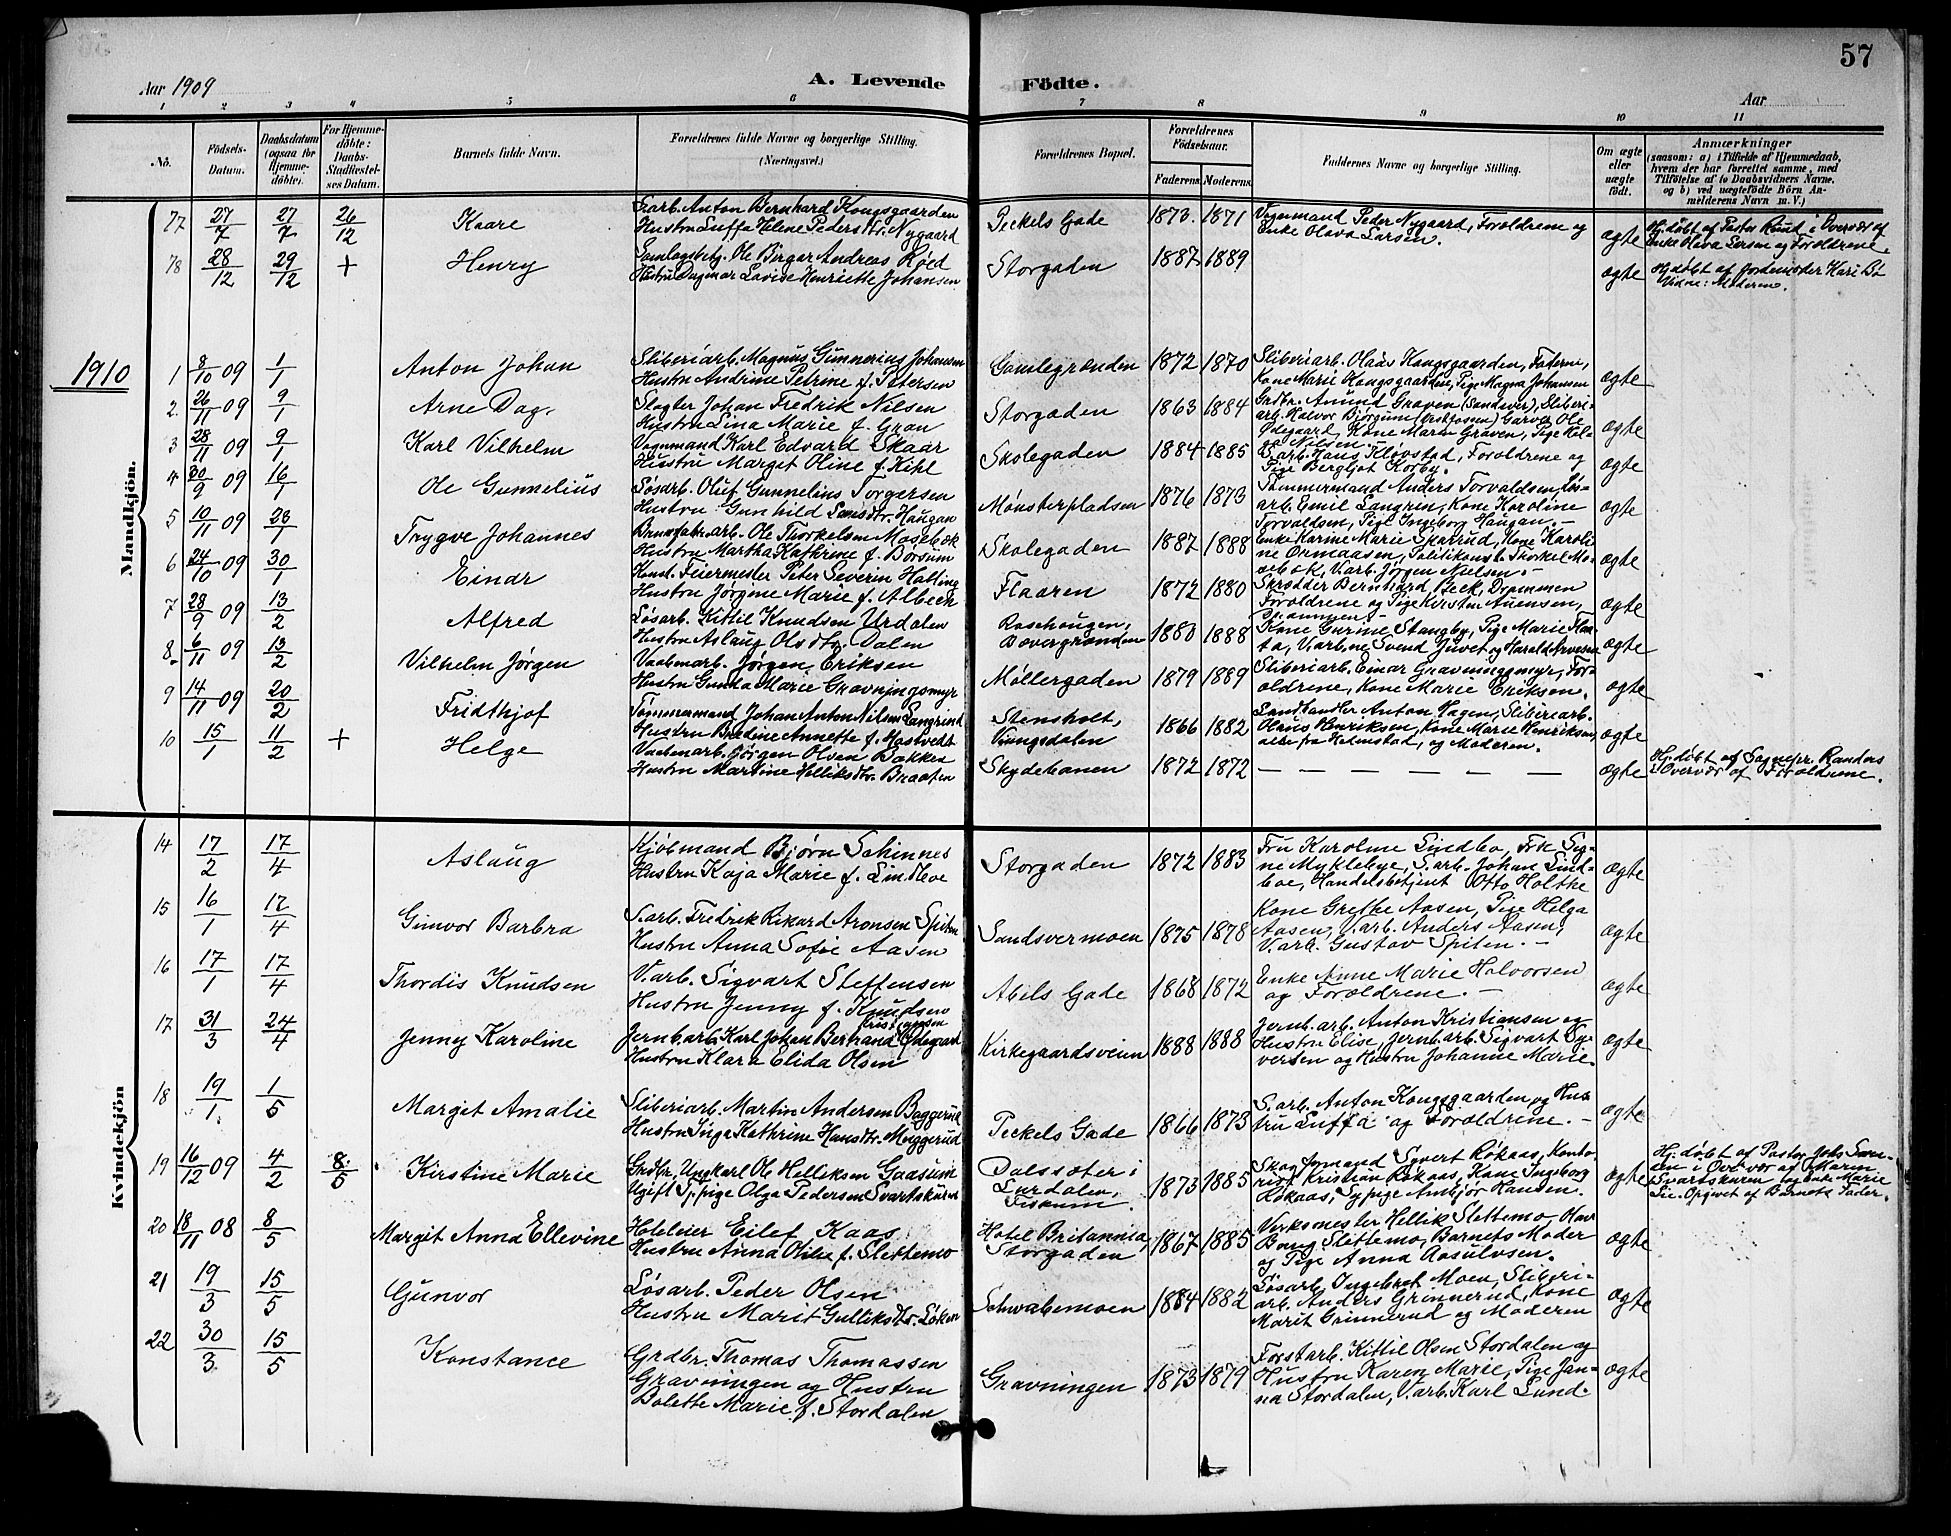 57
Aar 1909
A. Levende Födte.
Aar
1 2 3 4 5 6 7 8 9 10 11
No. Födsels-Datum. Daabsdatum (ogsaa for Hjemme-döbte). For Hjemme-döbte: Daabs-Stadfæstel-ses Datum. Barnets fulde Navn. Forældrenes fulde Navne og borgerlige Stilling. (Næringsvei.) Forældrenes Bopæl. Forældrenes Födselsaar. Faderens. Moderens. Faddernes Navne og borgerlige Stilling. Om ægte eller uægte födt. Anmærkninger (saasom: a) i Tilfælde af Hjemmedaab, hvem der har forrettet samme, med Tilföielse af to Daabsvidners Navne, og b) ved uægtefödte Börn An-melderens Navn m. V.)
Mandkjön.
77 27/7 27/7 26/12 Kaare
Anton Bernhard Kongsgaarden
Hustru Luffa Helene Pedersdtr. Nygaard
Peckels Gade 1873. 1871
Vognmand Peder Nygaard, Forældrene og
Enke Olava Larsen.
ægte
Hj. døbt af Pastor Riud i Overvær af
Enke Olava Larsen og Forældrene.
78 28/12 29/12 + Henry
Ole Birger Andreas Röed
Hustru Dagmar Lovise Henriette Johansen
Storgaden 1887 1889 ægte
Hj. døbt af Jordemoder Kari Bö
Vidne: Moderen.
1910
1 8/10 09 1/1 Anton Johan
Sliberiarb. Magnus Gunnerius Johansen
Hustru Andrine Petrine f. Petersen
Gamlegrænden 1872 1870
Sliberiarb. Olaus Kongsgaarden, Faderne,
Kone Marie Kongsgaarden, Pige Magna Johansen
ægte
2. 26/11 09 9/1 Arne Dag.
Slagter Johan Fredrik Nilsen
Hustru Lina Marie f. Gran
Storgaden 1863 1884
Grdbr. Amund Graven (Sandsvær), Sliberi-
arb. Halvor Bjørgum, Garver Ole
Ødegaard, Kone Maren Graven, Pige Hel-
ga Nilsen.
ægte
3 28/11 09 9/1 Karl Vilhelm
Vognmand Karl Edvard Skaar
Hustru Margit Oline f. Kihl
Skolegaden 1884 1885
V. arb. Hans Klovstad, Forældrene og
Pige Bergljot Korby.
ægte
4 30/9 09 16/1 Ole Gunnelius
Løsarb. Oluf Gunnelius Torgersen
Hustru Gunhild Haugan
Mønsterpladsen 1876 1873
Tømmermand Anders Torvaldsen, Løs-
arb. Emil Langren, Kone Karoline
Torvaldsen, Pige Ingeborg Haugan.
ægte
5 10/11 09 23/1 Trygve Johannes
Brusfabr. arb. Ole Thorkelsen Mosebæk
Hustru Martha Kathrine f. Börsum
Skolegaden 1887 1888
Enke Karine Marie Skarrud, Kone Karoli-
ne Ormaasen, Politikonst. Thorkel Mo-
sebæk, V. arb. Jörgen Nielsen.
ægte
6 24/10 09 30/1 Einar
Konst. Feiermester Peter Severin Halling
Hustru Jørgine Marie f. Albeck
Flaaren 1872 1880
Skrædder Bernhard Beck, Drammen
Forældrene og Pige Kirsten
ægte
7 28/9 09 13/2 Alfred
Løsarb. Kittil Knudsen Urdalen
Hustru Aslaug Olsdtr. Dalen
Rosehaugen,
Bævergrænden 1880 1888
Kone Gurine Stangby, Pige Marie
V. arb.ne Svend Juvet og Harald
ægte
8. 6/11 09 13/2 Vilhelm Jørgen
Vaabenarb. Jørgen Eriksen
Hustru Gunda Marie Gravningsmyr
Møllergaden 1879 1889
Sliberiarb. Einar Gravningsmyr, For-
ældrene, Kone Marie Eriksen.
ægte
9 14/11 09 20/2 Fridthjof
Tømmermand Johan Anton Nilsen Langrind
Hustru Bredine Annette f. Hostvedt
Stensholt,
Vungsdalen 1866 1882
Landhandler Anton Hagen, Sliberiarb.
Olaus Henriksen, Kone Marie Henriksen,
alle fra Helmstad, og Moderen.
ægte
10 15/1 11/2 + Helge
Vaabenarb. Jörgen Olsen Bakken
Hustru Martine Helliksdtr. Braaten
Skydebanen 1872 1872
— — — — — — —
ægte
Hj. döbt af Sognepr. Randers
i Overvær af Forældrene.
Kvindekjön
14 17/2 17/4 Aslaug
Kjøbmand Björn Schinnes
Hustru Kaja Marie f. Lindboe
Storgaden 1872 1883
Fru Karoline Lindbo, Frk Sig-
ne Myklebye, S. arb. Johan Lind-
boe, Handelsbetjent Otto Holthe
ægte
15 16/1 17/4 Gunvor Barbra
S. arb. Fredrik Rikard Aronsen Spiten
Hustru Anna Sofie Aasen
Sandsvermoen 1875 1878
Kone Grethe Aasen, Pige Helga
Aasen, V. arb. Anders Aasen,
V. arb. Gustav Spiten. —
ægte
16 17/1 17/4 Thordis Knudsen
V. arb. Sigvart Steffensen
Hustru Jenny f. Knudsen
Abels Gade 1868 1872
Enke Anne Marie Halvorsen
og Forældrene. —
ægte
17 31/3 24/4 Jenny Karoline
Kristiansen
Jernb. arb. Karl Johan Bertrand Ødegaard
Hustru Klara Elida Olsen
Kirkegaardsveien 1888 1888
Jernb. arb. Anton Kristiansen og
Hustru Elise, Jernb. arb. Sigvart Sy-
versen og Hustru Johanne Marie.
ægte
18 19/1. 1/5 Margit Amalie
Sliberiarb. Martin Andersen Baggerud
Hustru Inga Kathrine Hansdtr. Muggerud
Peckels Gade 1866 1873
S. arb. Anton Kongsgaarden og Hus-
tru Luffa og Forældrene. —
ægte
19 16/12 09 4/2 8./5 Kirstine Marie
Grdbr., Ungkarl Ole Helliksen Gaasum
Ugift Sypige Olga Pedersen Svartskuren
Dalssæter i
Lurdalen,
Fiskum. 1873 1885
Skogformand Syvert Røkaas, Konto-
rist Kristian Røkaas, Kone Ingeborg
Røkaas, Sypige Ambjör Hansen.
ægte
Hj. døbt af Pastor Johs San-
den i Overvær af Maren
Svartskuren og Enke Marie
Lie. Opgivet af Barnets Fader.
20 18/11 08 8/5 Margit Anna Ellevine
Hoteleier Eilef Kaas
Hustru Anna Otilie f. Slettemo
Hotel Britannia,
Storgaden 1867 1885
Verksmester Hellik Slettemo, Olav
Baug Slettemo, Barnets Moder
og Pige Anna Aasulvsen.
ægte
21 19/3 15/5 Gunvor
Løsarb. Peder Olsen
Hustru Marit Gulliksdtr. Löken
Schwabemoen 1884 1882
Løsarb. Ingebret Moen, Sliberi-
arb. Anders Grinnerud, Kone
Marit Grinnerud og Moderen
ægte
22 30/3. 15/5 Konstance
Grdbr. Thomas Thomassen
Gravningen og Hustru
Bolette Marie f. Stordalen
Gravningen 1873 1879
Forstarb. Kittil Olsen Stordalen og
Hustru Karen Marie, Pige Jan-
na Stordalen, V. arb. Karl Lund.
ægte